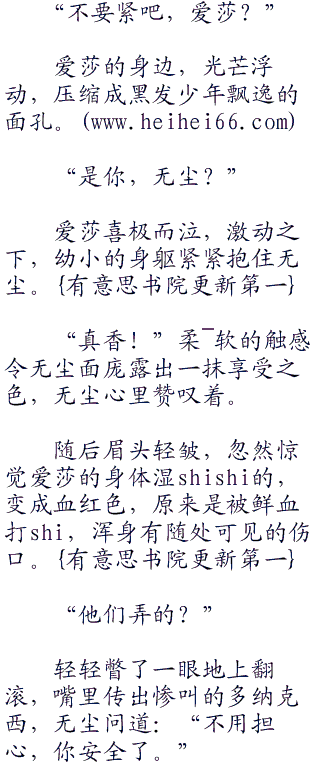 “不要紧吧，爱莎？”
爱莎的身边，光芒浮
动，压缩成黑发少年飘逸的
面孔。(www.heihei66.com)
“是你，无尘？”
爱莎喜极而泣，激动之
下，幼小的身躯紧紧抱住无
尘。{有意思书院更新第一}
“真香！”柔¯软的触感
令无尘面庞露出一抹享受之
色，无尘心里赞叹着。
随后眉头轻皱，忽然惊
觉爱莎的身体湿shishi的，
变成血红色，原来是被鲜血
打shi，浑身有随处可见的伤
口。{有意思书院更新第一}
“他们弄的？”
轻轻瞥了一眼地上翻
滚，嘴里传出惨叫的多纳克
西，无尘问道：“不用担
心，你安全了。”